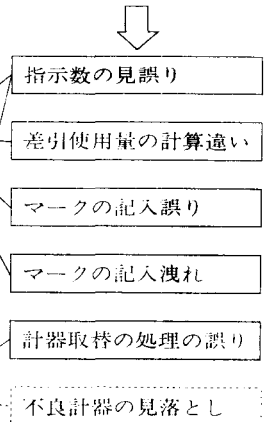 指示数の見誤り
差引使用量の計算違い
マークの記入誤り
マークの記入洩れ
計器取替の処理の誤り
不良計器の見落とし